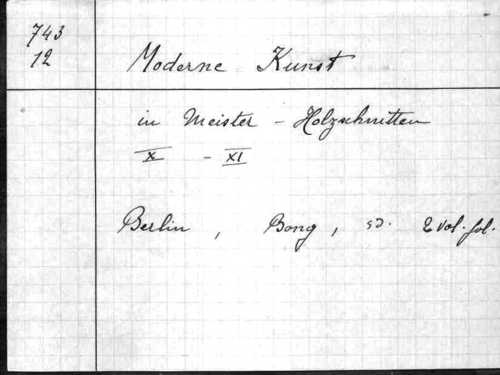 743
12
Moderne Kunst
in Meister - Holzschnitten
X - XI
Berlin, Bong, sd. 2 vol. fol.